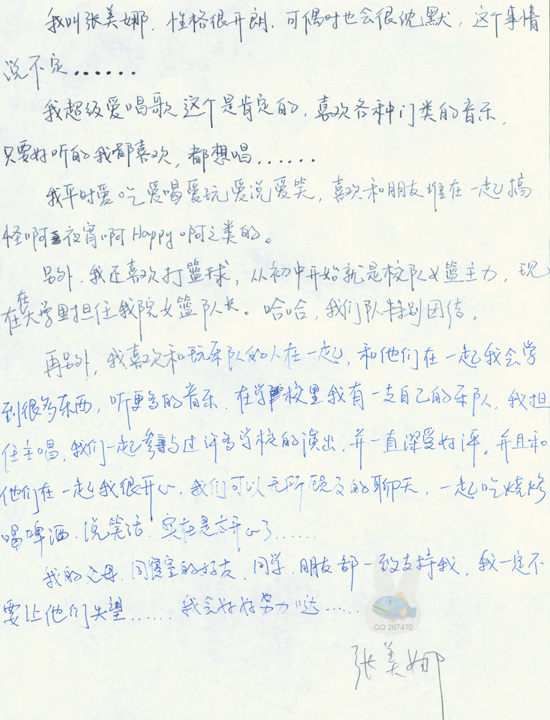 我叫张美娜．性格很开朗．可偶时也会很沈默，这个事情
说不定......
我超级爱唱歌 这个是肯定的，喜欢各种门类的音乐，
只要好听的我都喜欢，都想唱......
我平时爱吃爱喝爱玩爱说爱笑，喜欢和朋友堆在一起搞
怪啊夜宵啊Happy啊之类的。
另外，我还喜欢打篮球，从初中开始就是校队女篮主力，现
在在大学里担任我院女篮队长。哈哈，我们队特别团结。
再另外，我喜欢和玩乐队的人在一起，和他们在一起我会学
到很多东西，听更多的音乐．在学校里我有一支自己的乐队，我担
任主唱，我们一起参与过许多学校的演出，并一直深受好评，并且和
他们在一起我很开心，我们可以无所顾及的聊天，一起吃烧烤
喝啤酒．说笑话．实在是忒开心了......
我的父母．同寝室的好友．同学．朋友都一致支持我，我一定不
要让他们失望......我会好好努力哒......
QQ 267475
张美娜